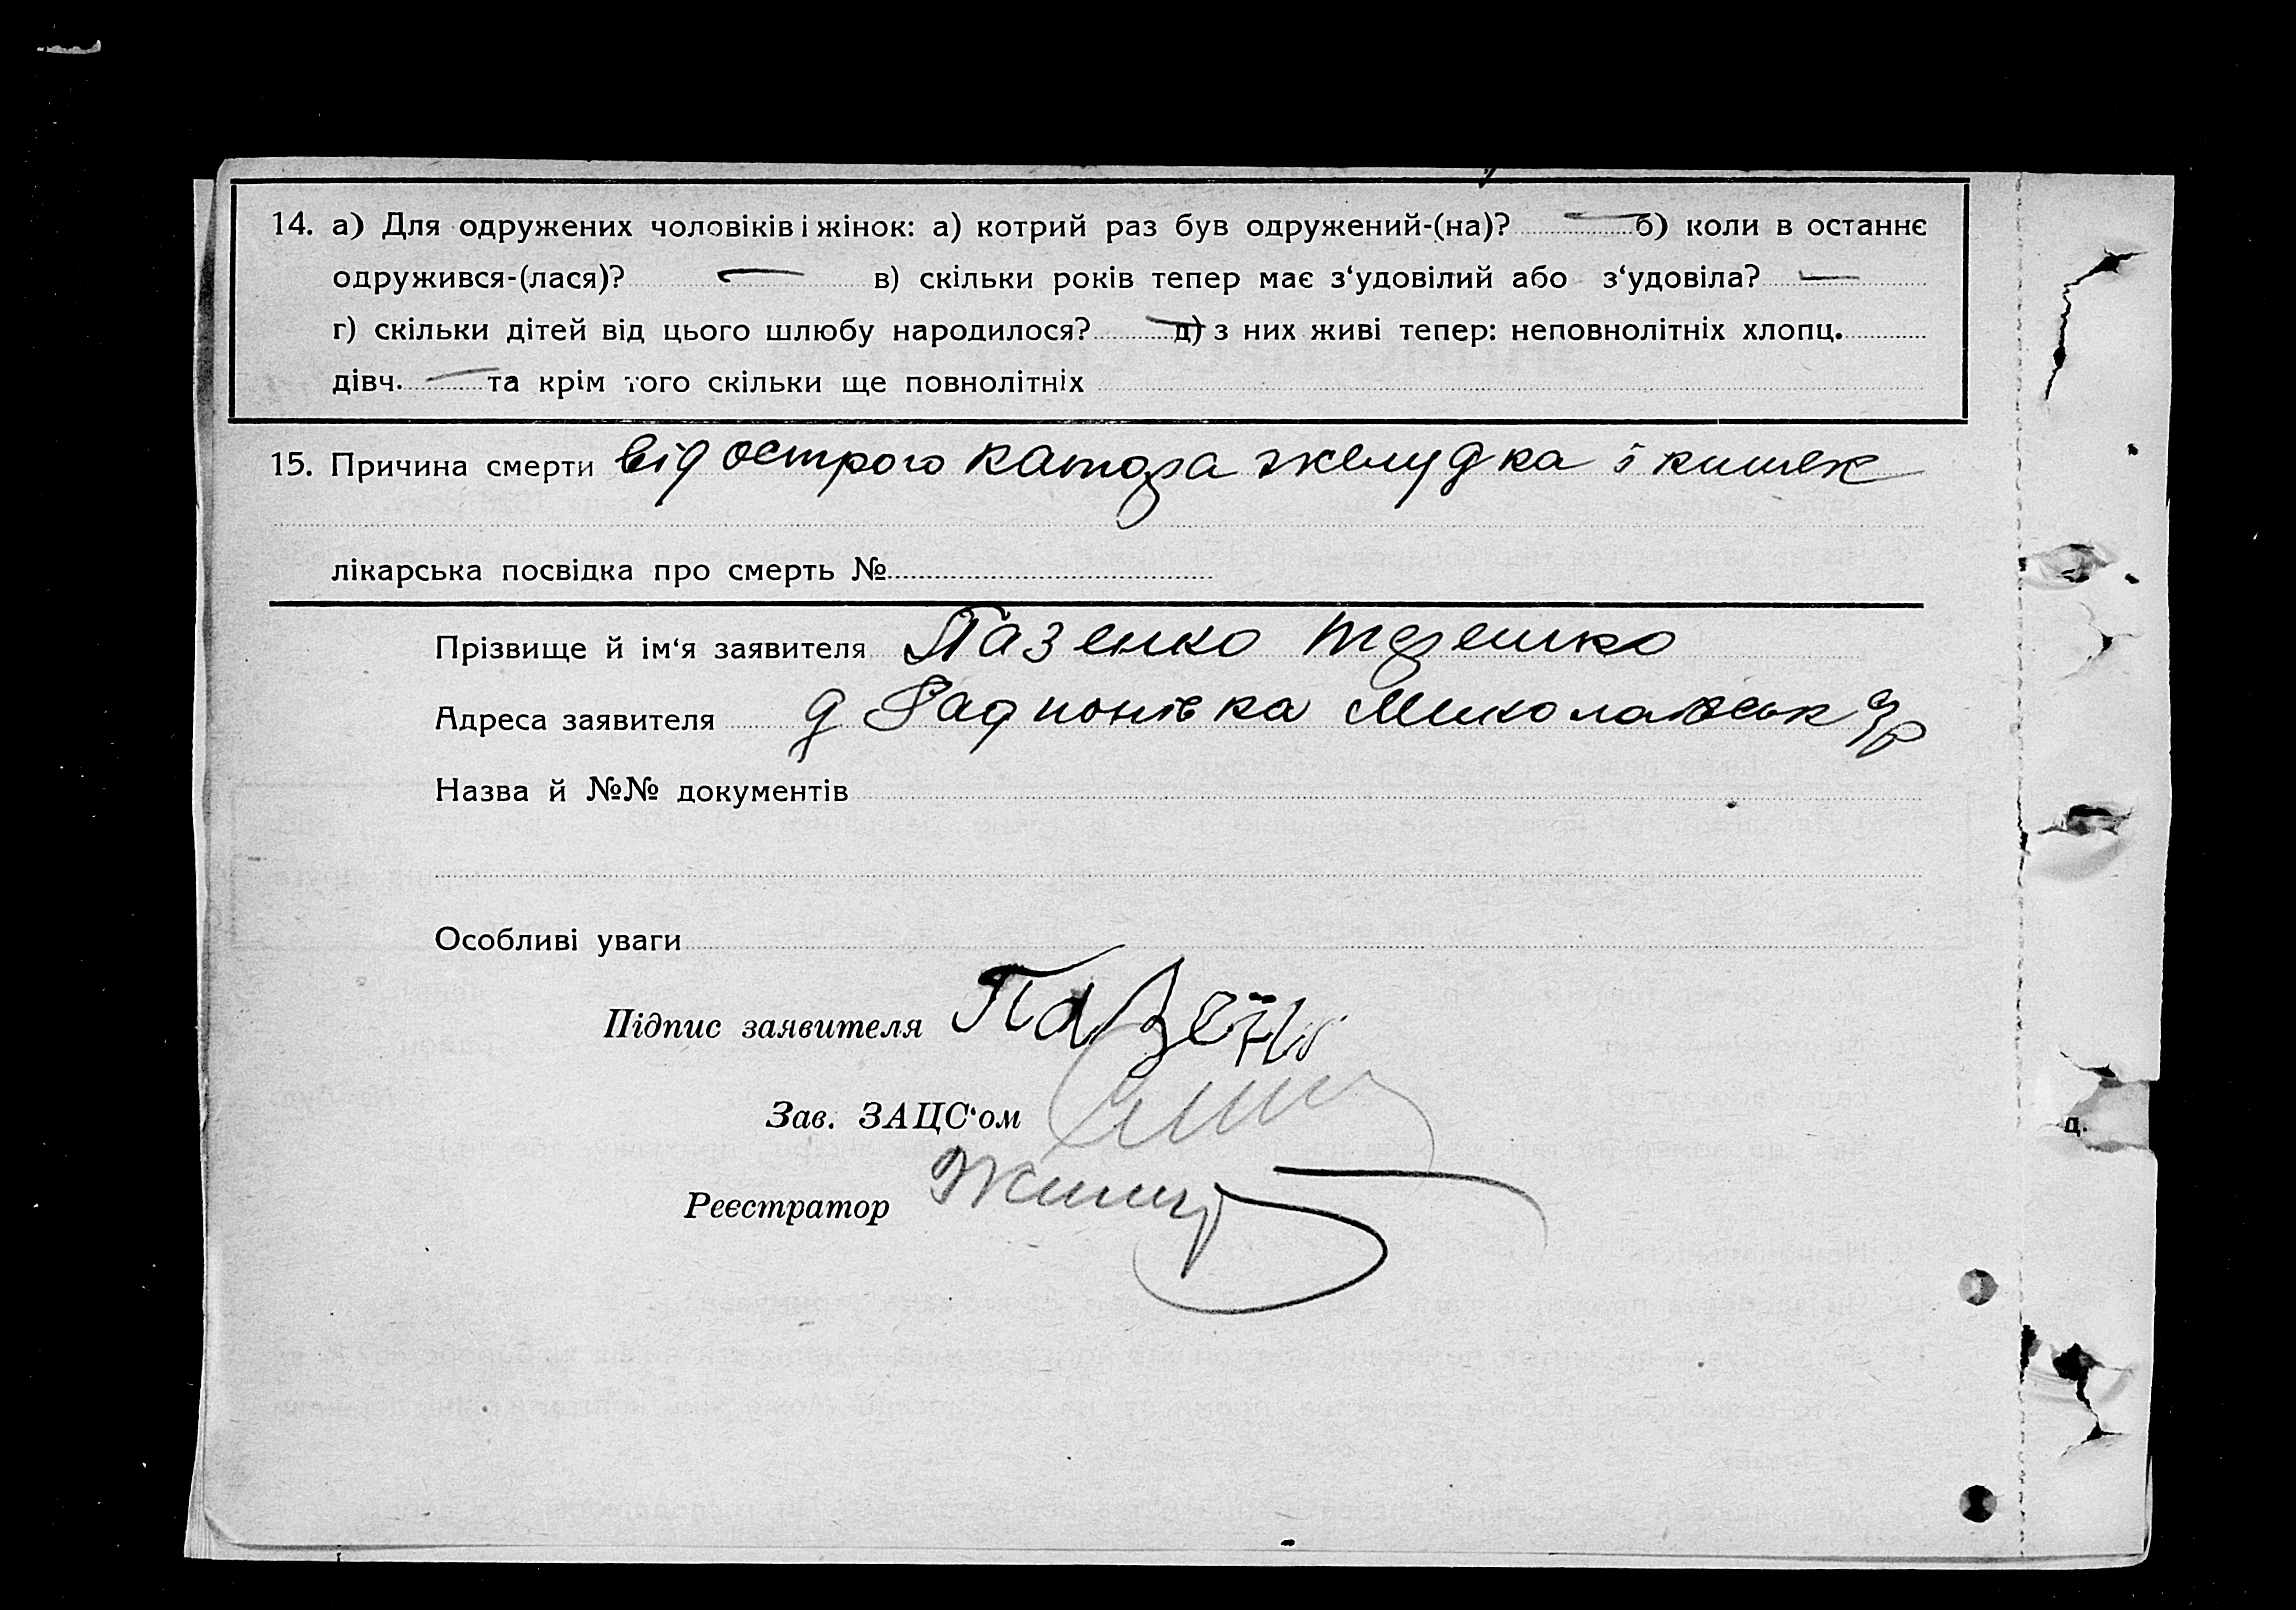 14. а) Для одружених чоловіків і жінок: а) котрий раз був одружений-(на)? — б) коли в останнє
одружився-(лася)? — в) скільки років тепер має з‘удовілий або з‘удовіла? —
г) скільки дітей від цього шлюбу народилося? — д) з них живі тепер: неповнолітніх хлопц.
дівч. — та крім того скільки ще повнолітніх
15. Причина смерти від острого катара желудка і кишек
лікарська посвідка про смерть №
Прізвище й ім‘я заявителя Пазенко Терешко
Адреса заявителя Миколаївськ
Назва й №№ документів
Особливі уваги
Підпис заявителя Пазенко
Зав. ЗАЦС‘ом
Реєстратор
д.